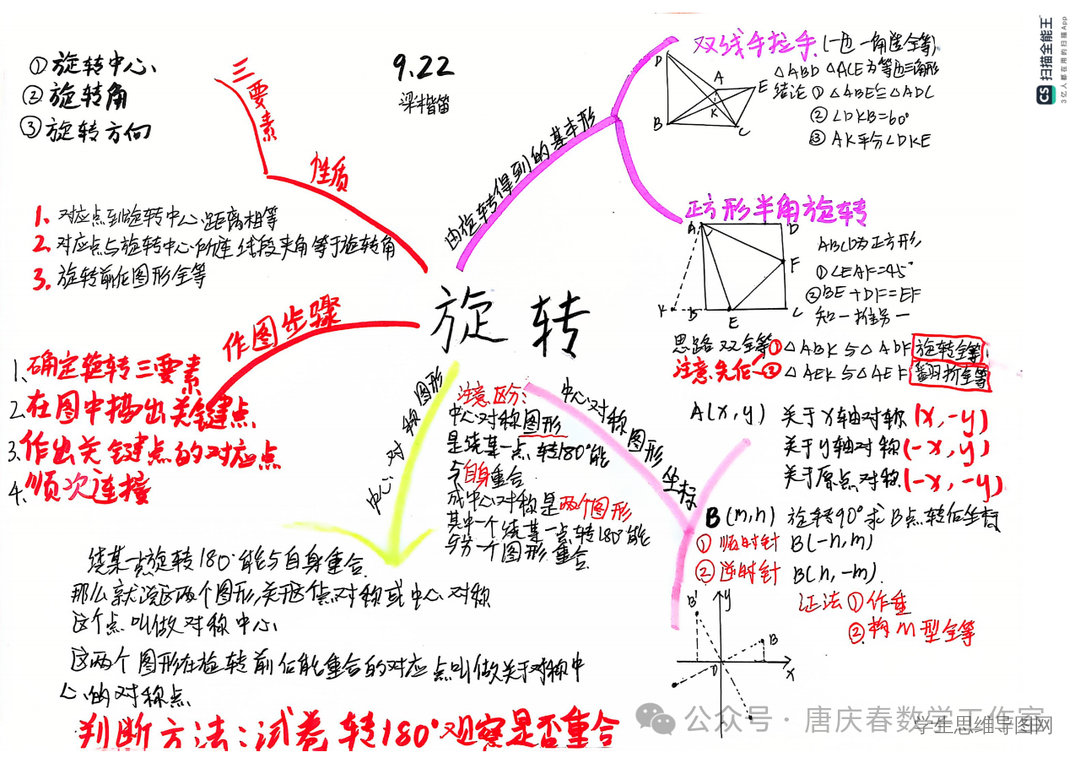 CS 扫描全能王
3亿人都在用的扫描App
9.22
旋转
三要素
① 旋转中心
② 旋转角
③ 旋转方向
性质
1. 对应点到旋转中心距离相等
2. 对应点与旋转中心所连线段夹角等于旋转角
3. 旋转前后图形全等
作图步骤
1、确定旋转三要素
2、在图中描出关键点
3、作出关键点的对应点
4、顺次连接
中心对称图形
绕某点旋转180°能与自身重合
那么就说这两个图形关于这个点对称或中心对称
这个点叫做对称中心
这两个图形在旋转前后能重合的对应点叫做关于对称中
心的对称点
判断方法:试卷转180°观察是否重合
注意区分:
中心对称图形
是绕某一点转180°能
与自身重合
成中心对称是两个图形
其中一个绕某一点转180°能
与另一个图形重合
由旋转得到的基本形
双线手拉手
△ABD △ACE为等边三角形
结论 ① △ABE≌△ADC
② ∠DKB=60°
③ AK平分∠DKE
D
A
E
K
B
C
正方形半角旋转
A
D
F
K
B
E
C
ABCD为正方形
① ∠EAF=45°
② BE+DF=EF
知一推另一
思路 双全等 ① △ABK与△ADF 旋转全等
注意先后 ② △AEK与△AEF 翻折全等
中心对称图形坐标
A(x,y) 关于x轴对称 (x,-y)
关于y轴对称 (-x,y)
关于原点对称 (-x,-y)
B(m,n) 旋转90°求B点转后坐标
① 顺时针 B(-n,m)
② 逆时针 B(n,-m)
证法 ① 作垂
② 构M型全等
B'
y
B
O
x
公众号 · 唐庆春数学工作室
学生思维导图网